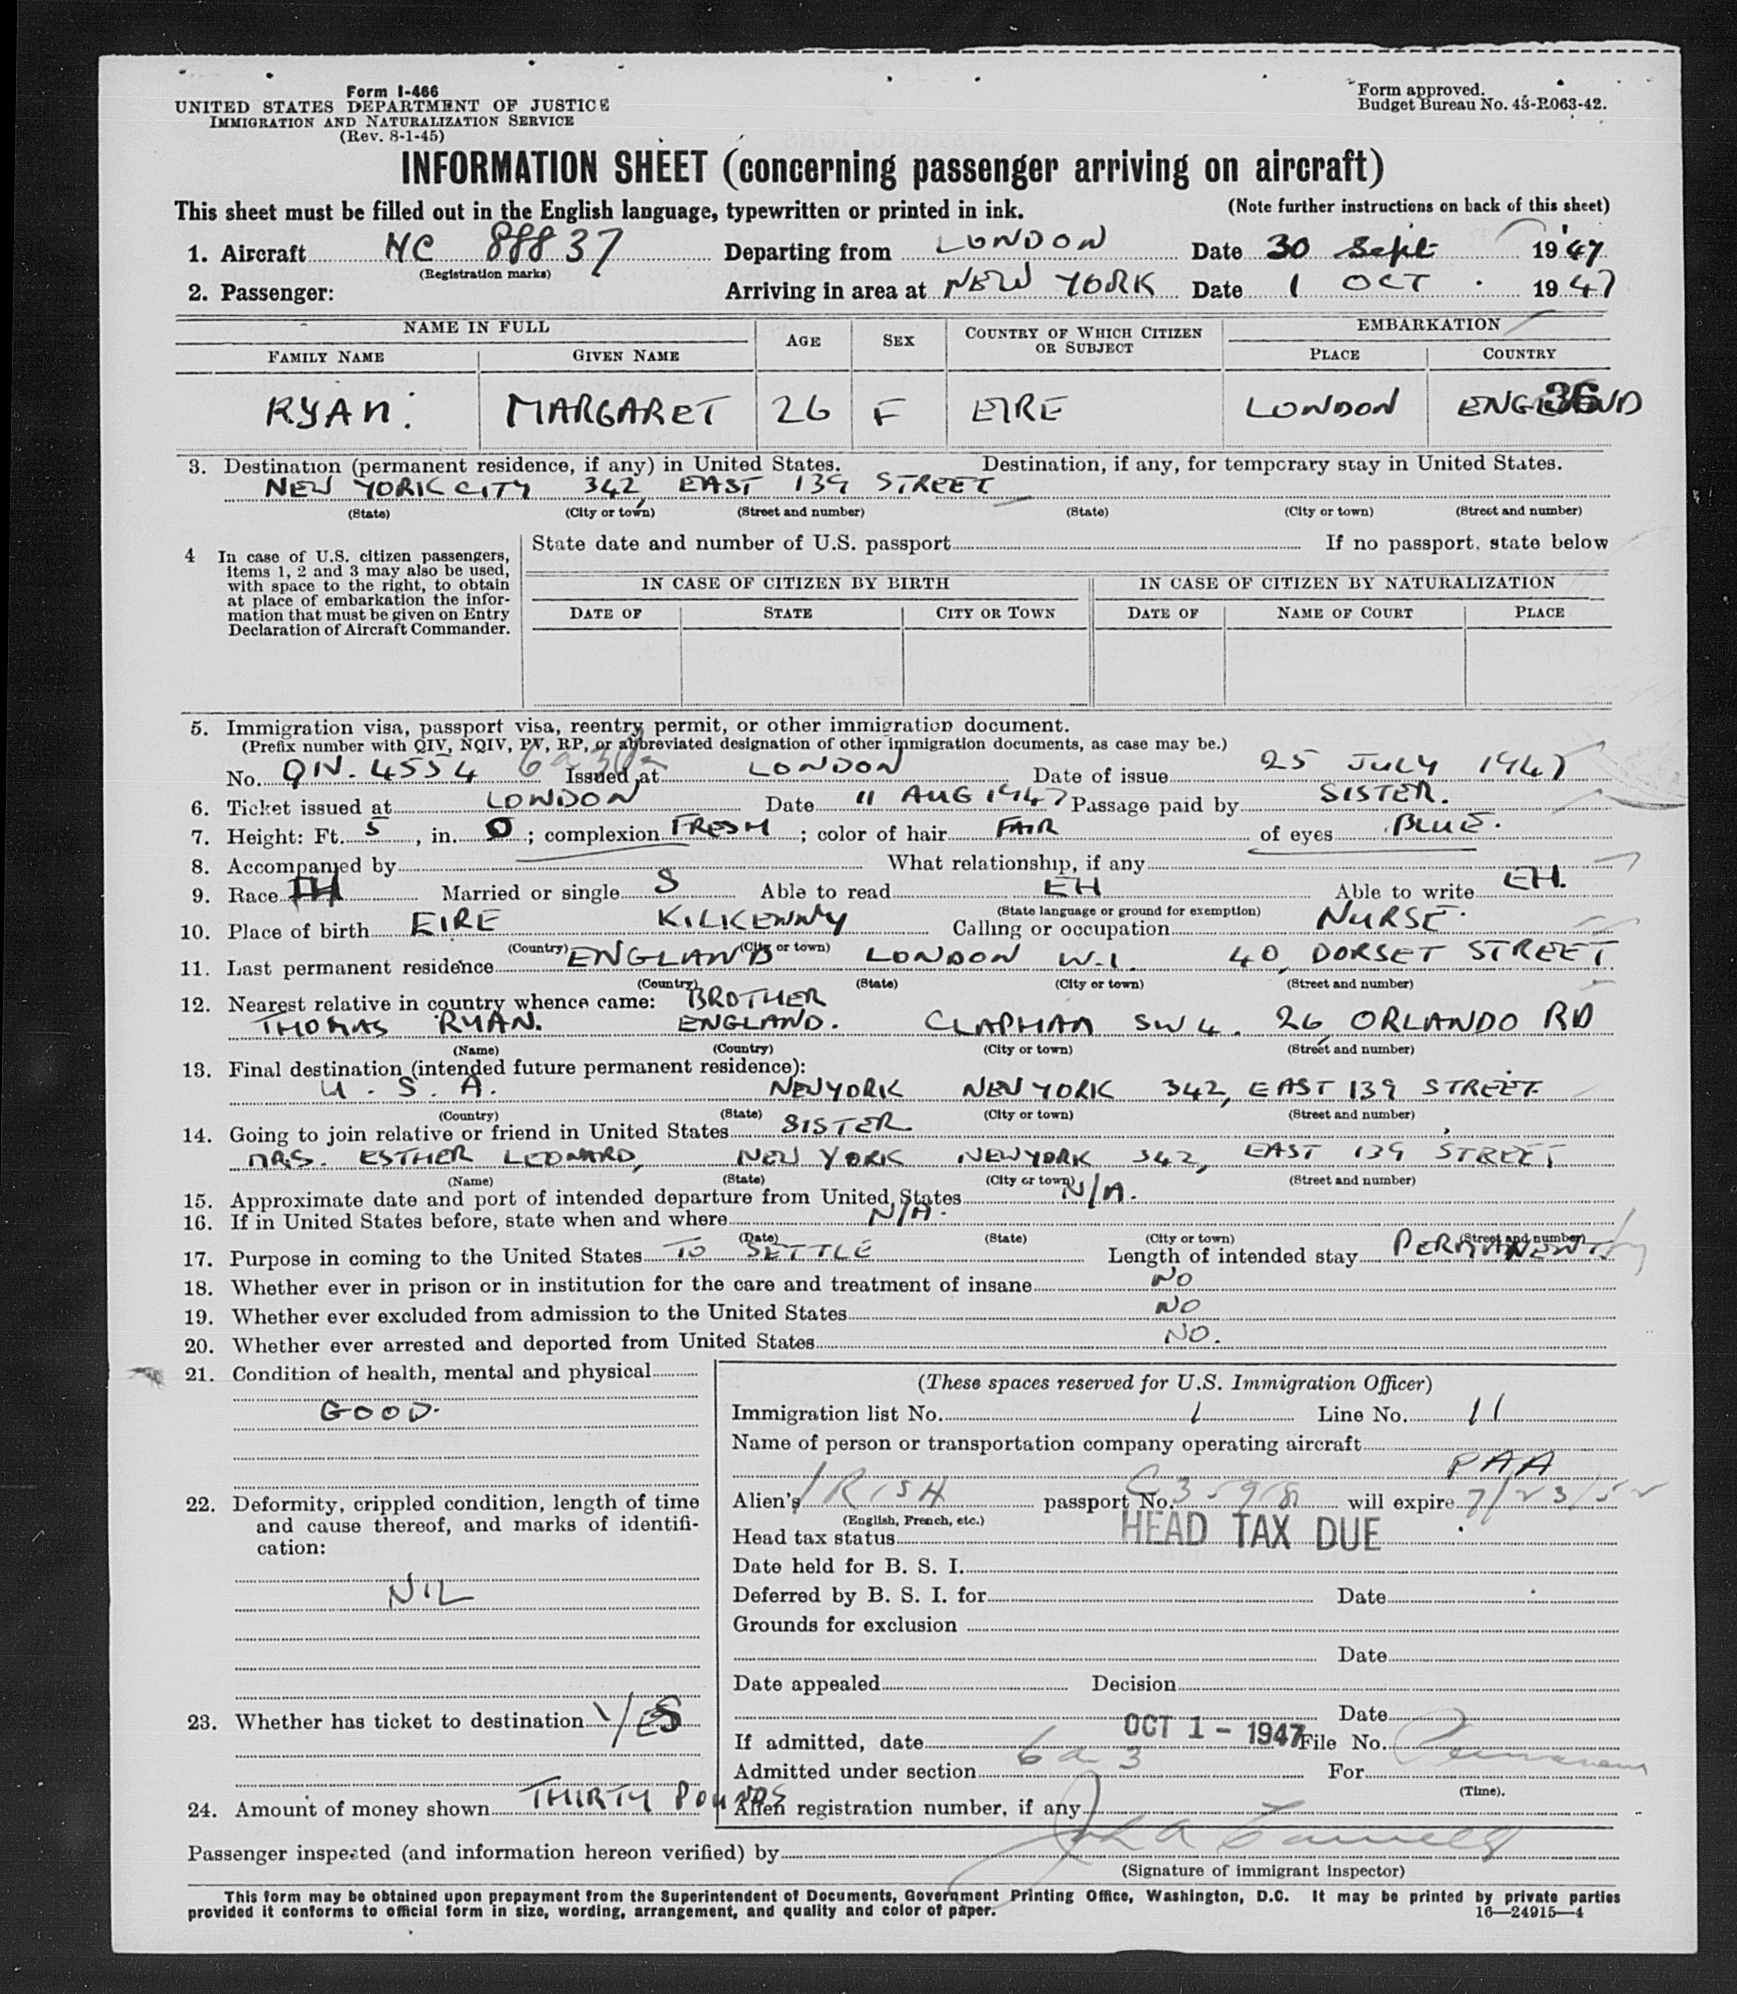 Form I-466
UNITED STATES DEPARTMENT OF JUSTICE
IMMIGRATION AND NATURALIZATION SERVICE
(Rev. 8-1-45)
Form approved.
Budget Bureau No. 43-R063-42.
INFORMATION SHEET (concerning passenger arriving on aircraft)
This sheet must be filled out in the English language, typewritten or printed in ink. (Note further instructions on back of this sheet)
1. Aircraft NC 88837 Departing from LONDON Date 30 Sept 1947
(Registration marks)
2. Passenger: Arriving in area at NEW YORK Date 1 OCT 1947
NAME IN FULL AGE SEX COUNTRY OF WHICH CITIZEN OR SUBJECT EMBARKATION
FAMILY NAME GIVEN NAME PLACE COUNTRY
RYAN. MARGARET 26 F EIRE LONDON ENGLAND 36
3. Destination (permanent residence, if any) in United States. Destination, if any, for temporary stay in United States.
NEW YORK CITY 342 EAST 139 STREET
(State) (City or town) (Street and number) (State) (City or town) (Street and number)
4 In case of U.S. citizen passengers, items 1, 2 and 3 may also be used, with space to the right, to obtain at place of embarkation the information that must be given on Entry Declaration of Aircraft Commander.
State date and number of U.S. passport If no passport, state below
IN CASE OF CITIZEN BY BIRTH IN CASE OF CITIZEN BY NATURALIZATION
DATE OF STATE CITY OR TOWN DATE OF NAME OF COURT PLACE
5. Immigration visa, passport visa, reentry permit, or other immigration document.
(Prefix number with QIV, NQIV, PV, RP, or abbreviated designation of other immigration documents, as case may be.)
No. QIV. 4554 Issued at LONDON Date of issue 25 JULY 1947
6. Ticket issued at LONDON Date 11 AUG 1947 Passage paid by SISTER.
7. Height: Ft. 5, in. 0; complexion FRESH; color of hair FAIR of eyes BLUE.
8. Accompanied by What relationship, if any
9. Race Married or single S Able to read EH Able to write EH.
(State language or ground for exemption)
10. Place of birth EIRE KILKENNY Calling or occupation NURSE.
(Country) (City or town)
11. Last permanent residence ENGLAND LONDON W.1. 40, DORSET STREET
(Country) (State) (City or town) (Street and number)
12. Nearest relative in country whence came: BROTHER
THOMAS RYAN. ENGLAND. CLAPHAM SW4. 26, ORLANDO RD
(Name) (Country) (City or town) (Street and number)
13. Final destination (intended future permanent residence):
U.S.A. NEW YORK NEW YORK 342, EAST 139 STREET.
(Country) (State) (City or town) (Street and number)
14. Going to join relative or friend in United States SISTER
MRS. ESTHER LEONARD, NEW YORK NEW YORK 342, EAST 139 STREET
(Name) (State) (City or town) (Street and number)
15. Approximate date and port of intended departure from United States N/A.
16. If in United States before, state when and where N/A.
(Date) (State) (City or town) (Street and number)
17. Purpose in coming to the United States TO SETTLE Length of intended stay PERMANENT
18. Whether ever in prison or in institution for the care and treatment of insane NO
19. Whether ever excluded from admission to the United States NO
20. Whether ever arrested and deported from United States NO.
21. Condition of health, mental and physical
GOOD.
22. Deformity, crippled condition, length of time and cause thereof, and marks of identification:
NIL
23. Whether has ticket to destination YES
24. Amount of money shown THIRTY POUNDS
(These spaces reserved for U.S. Immigration Officer)
Immigration list No. 1 Line No. 11
Name of person or transportation company operating aircraft
PAA
Alien's IRISH passport No. C3598 will expire 7/23/52
(English, French, etc.)
Head tax status HEAD TAX DUE
Date held for B. S. I.
Deferred by B. S. I. for Date
Grounds for exclusion
Date
Date appealed Decision
Date
If admitted, date OCT 1 - 1947 File No.
Admitted under section 6 a 3 For
(Time).
Alien registration number, if any
Passenger inspected (and information hereon verified) by
(Signature of immigrant inspector)
This form may be obtained upon prepayment from the Superintendent of Documents, Government Printing Office, Washington, D.C. It may be printed by private parties
provided it conforms to official form in size, wording, arrangement, and quality and color of paper. 16—24915-4